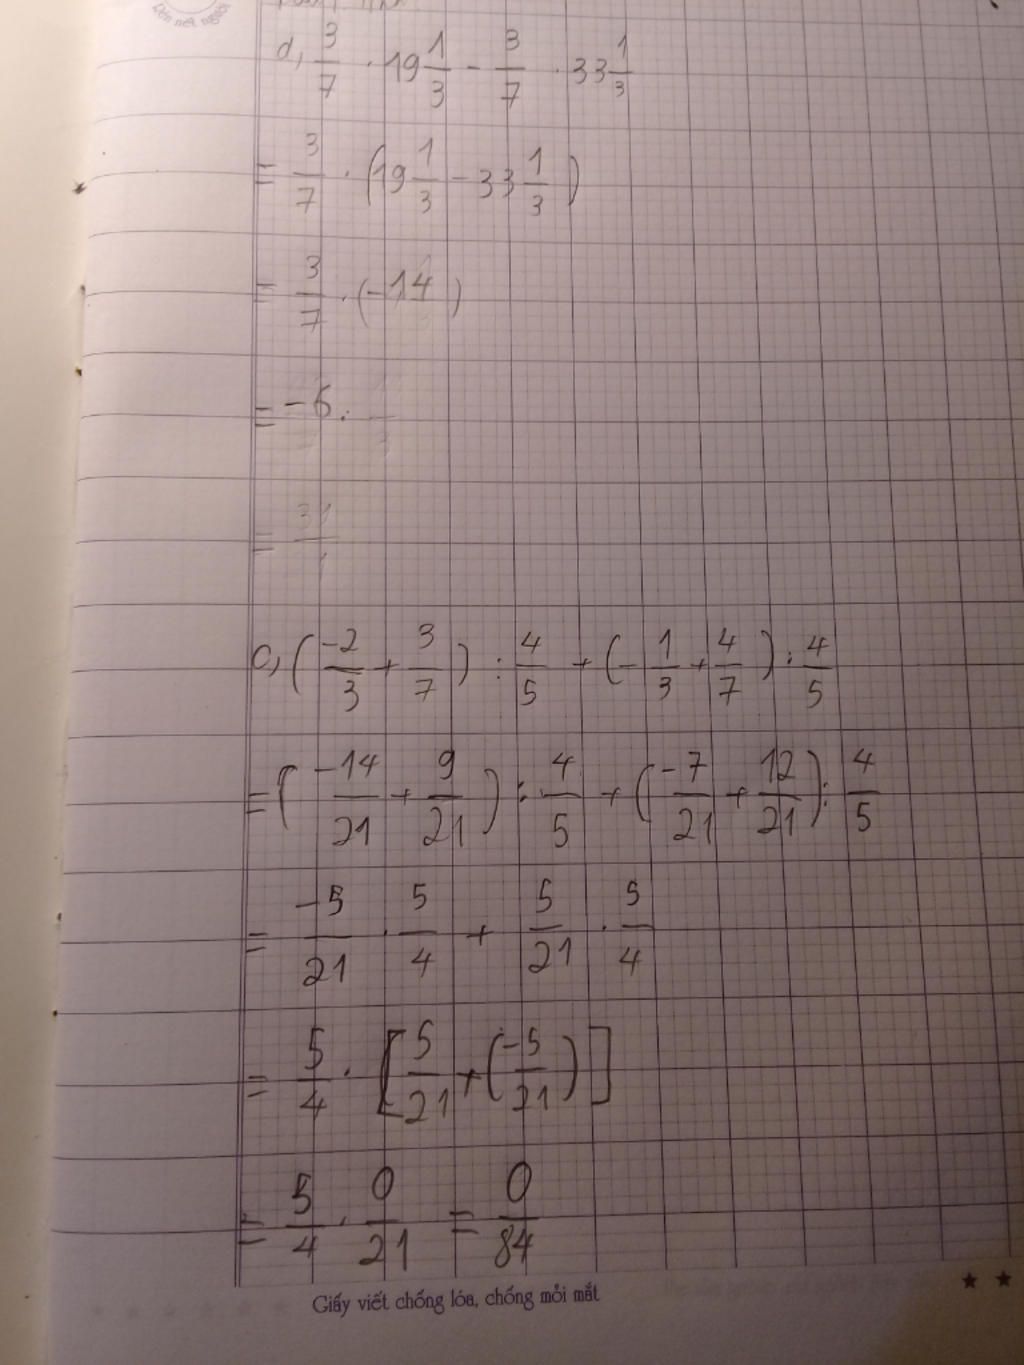 Dên nét người
d, 3/7 . 19 1/3 - 3/7 . 33 1/3
= 3/7 . (19 1/3 - 33 1/3)
= 3/7 . (-14)
= -6.
= 31/
c, (-2/3 + 3/7) : 4/5 + (-1/3 + 4/7) : 4/5
= (-14/21 + 9/21) : 4/5 + (-7/21 + 12/21) : 4/5
= -5/21 . 5/4 + 5/21 . 5/4
= 5/4 . [5/21 + (-5/21)]
= 5/4 . 0/21 = 0/84
Giấy viết chống lóa, chống mỏi mắt